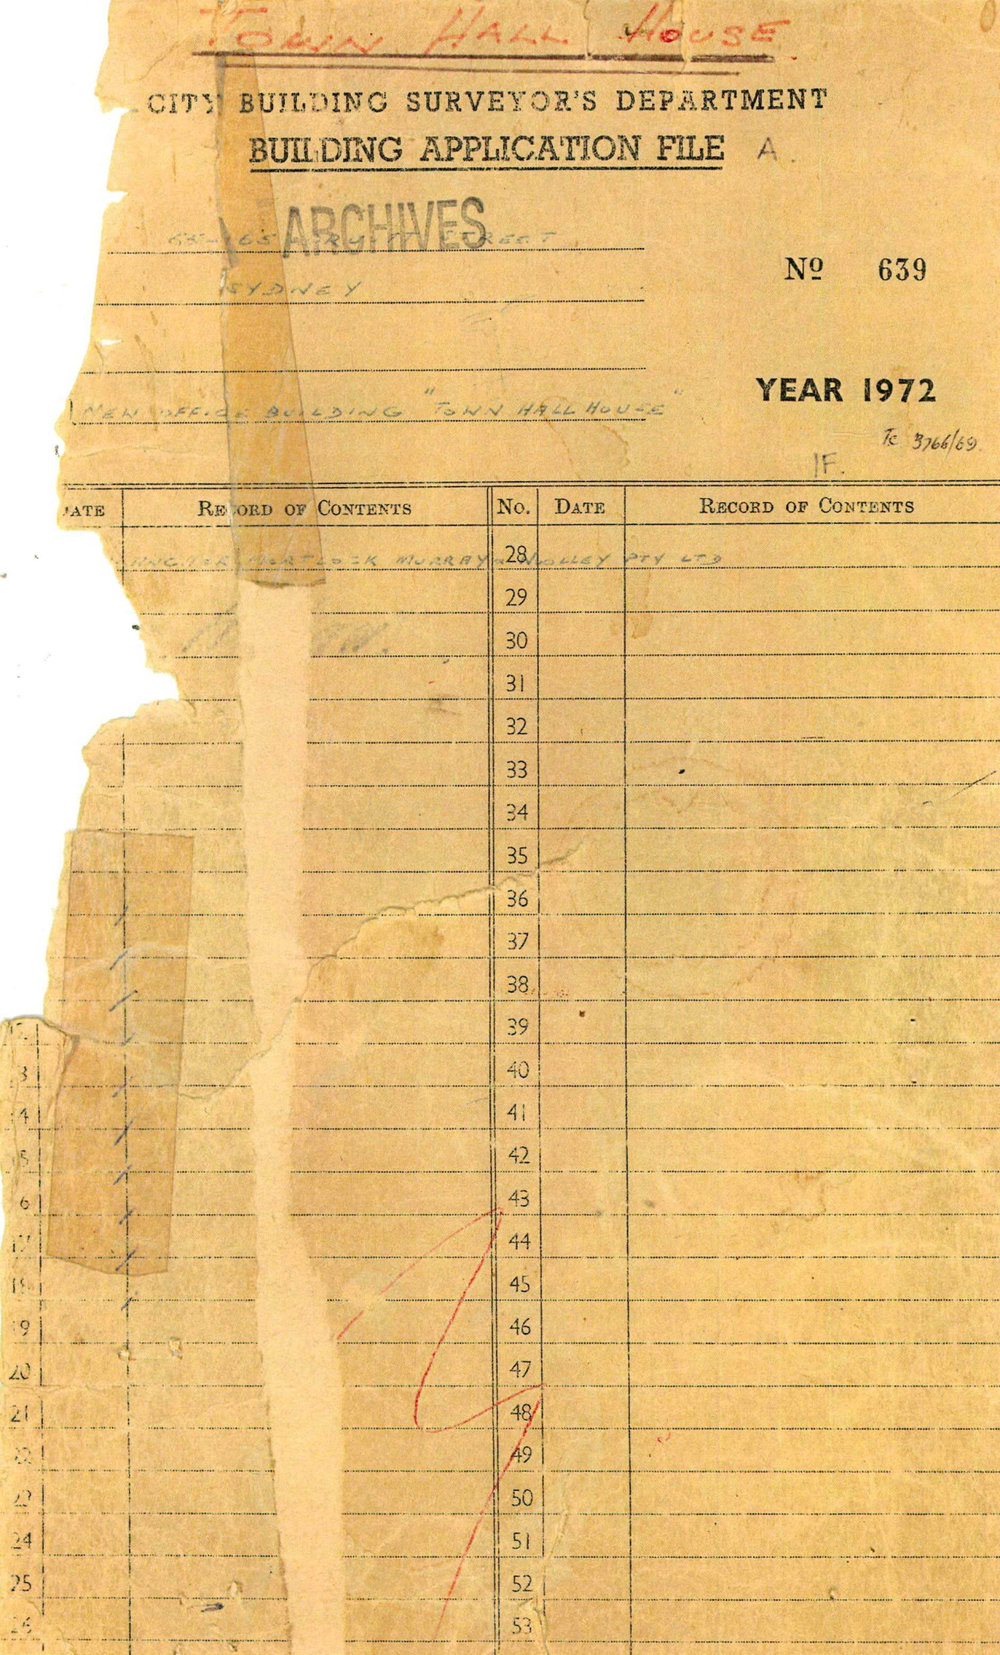 TOWN HALL HOUSE
CITY BUILDING SURVEYOR'S DEPARTMENT
BUILDING APPLICATION FILE A.
ARCHIVES
STREET
SYDNEY
No 639
YEAR 1972
NEW OFFICE BUILDING "TOWN HALL HOUSE"
Tc 3766/69.
IF.
ATE RECORD OF CONTENTS No. DATE RECORD OF CONTENTS
MORTLOCK MURRAY & WOLLEY PTY LTD
28
29
30
31
32
33
34
35
36
37
38
39
3 40
4 41
5 42
6 43
17 44
18 45
19 46
20 47
21 48
22 49
23 50
24 51
25 52
26 53